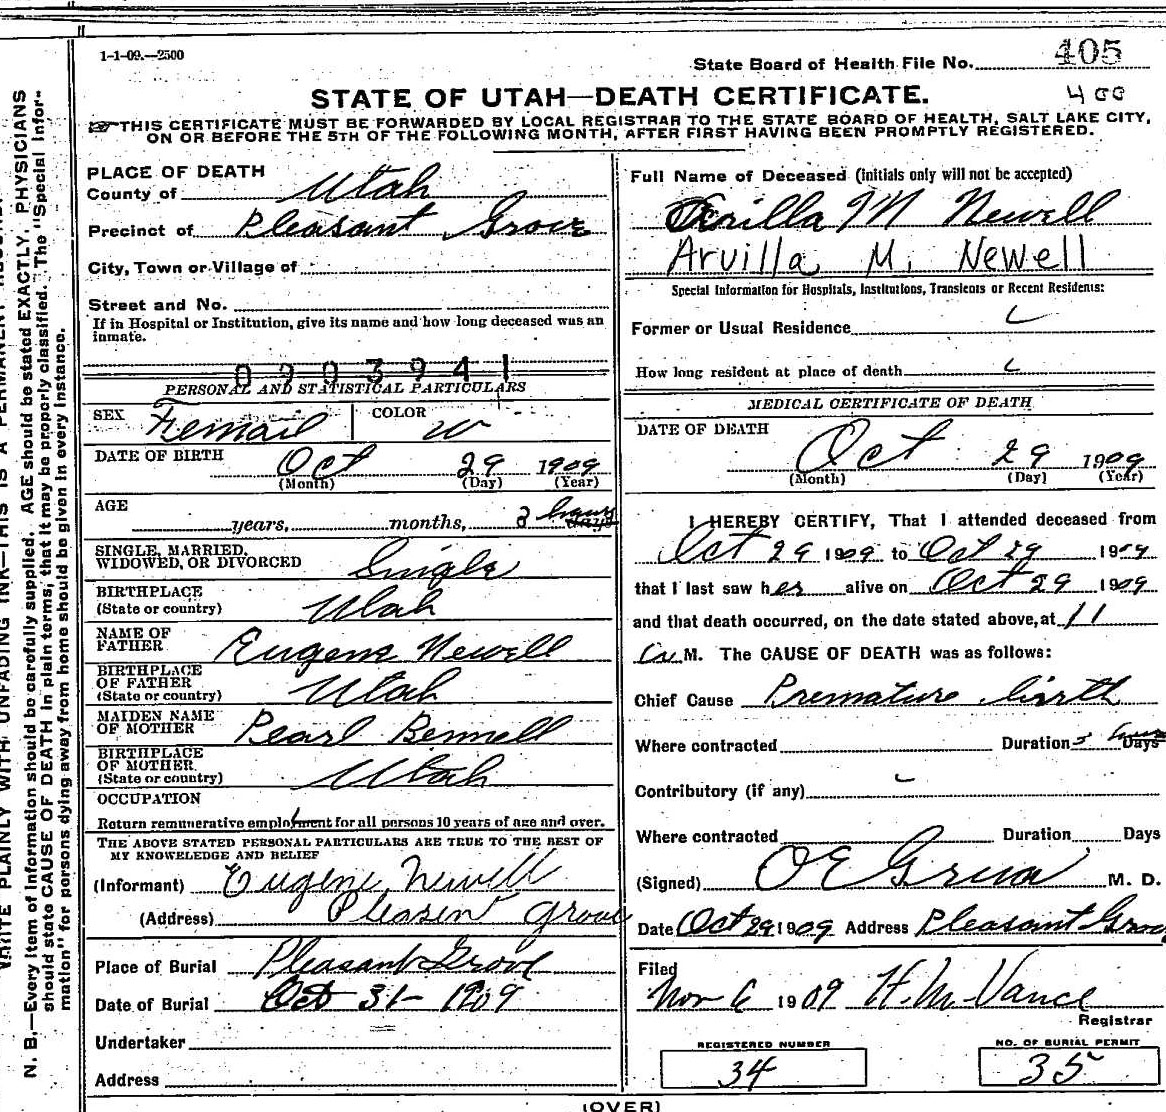 1-1-09.—2500
State Board of Health File No. 405
STATE OF UTAH—DEATH CERTIFICATE.
400
THIS CERTIFICATE MUST BE FORWARDED BY LOCAL REGISTRAR TO THE STATE BOARD OF HEALTH, SALT LAKE CITY,
ON OR BEFORE THE 5TH OF THE FOLLOWING MONTH, AFTER FIRST HAVING BEEN PROMPTLY REGISTERED.
PLACE OF DEATH
County of Utah
Precinct of Pleasant Grove
City, Town or Village of
Street and No.
If in Hospital or Institution, give its name and how long deceased was an
inmate.
PERSONAL AND STATISTICAL PARTICULARS
SEX Femail COLOR W
DATE OF BIRTH Oct 29 1909
(Month) (Day) (Year)
AGE years, months, hours days
SINGLE, MARRIED,
WIDOWED, OR DIVORCED Single
BIRTHPLACE
(State or country) Utah
NAME OF
FATHER Eugene Newell
BIRTHPLACE
OF FATHER
(State or country) Utah
MAIDEN NAME
OF MOTHER Pearl Bennell
BIRTHPLACE
OF MOTHER
(State or country) Utah
OCCUPATION
Return remunerative employment for all persons 10 years of age and over.
THE ABOVE STATED PERSONAL PARTICULARS ARE TRUE TO THE BEST OF
MY KNOWELEDGE AND BELIEF
(Informant) Eugene Newell
(Address) Pleasen Grove
Place of Burial Pleasant Grove
Date of Burial Oct 31- 1909
Undertaker
Address
Full Name of Deceased (initials only will not be accepted)
M Newell
Arvilla M. Newell
Special Information for Hospitals, Institutions, Transients or Recent Residents:
Former or Usual Residence
How long resident at place of death
MEDICAL CERTIFICATE OF DEATH
DATE OF DEATH
Oct 29 1909
(Month) (Day) (Year)
I HEREBY CERTIFY, That I attended deceased from
Oct 29 1909 to Oct 29 1909
that I last saw her alive on Oct 29 1909
and that death occurred, on the date stated above, at 11
a M. The CAUSE OF DEATH was as follows:
Chief Cause Premature birth
Where contracted Duration hours Days
Contributory (if any)
Where contracted Duration Days
(Signed) O E Grua M. D.
Date Oct 29 1909 Address Pleasant Grove
Filed
Nov 6 1909 H. M. Vance
Registrar
REGISTERED NUMBER
34
NO. OF BURIAL PERMIT
35
(OVER)
WRITE PLAINLY WITH UNFADING INK—THIS IS A PERMANENT
N. B.—Every item of information should be carefully supplied. AGE should be stated EXACTLY. PHYSICIANS
should state CAUSE OF DEATH in plain terms, that it may be properly classified. The "Special Infor-
mation" for persons dying away from home should be given in every instance.